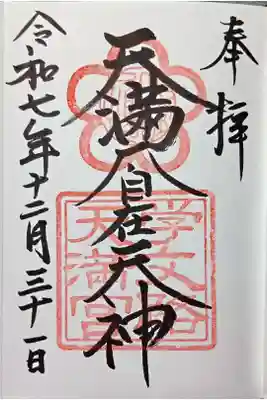 奉拝
天満大自在天神
學文路
天満宮
令和七年十二月三十一日